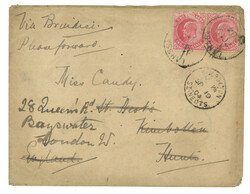 Via Brindisi.
Please forward.
Miss Candy.
28 Queen's Rd. St. Neots
Bayswater Kimbolton
London W. Hunts
England